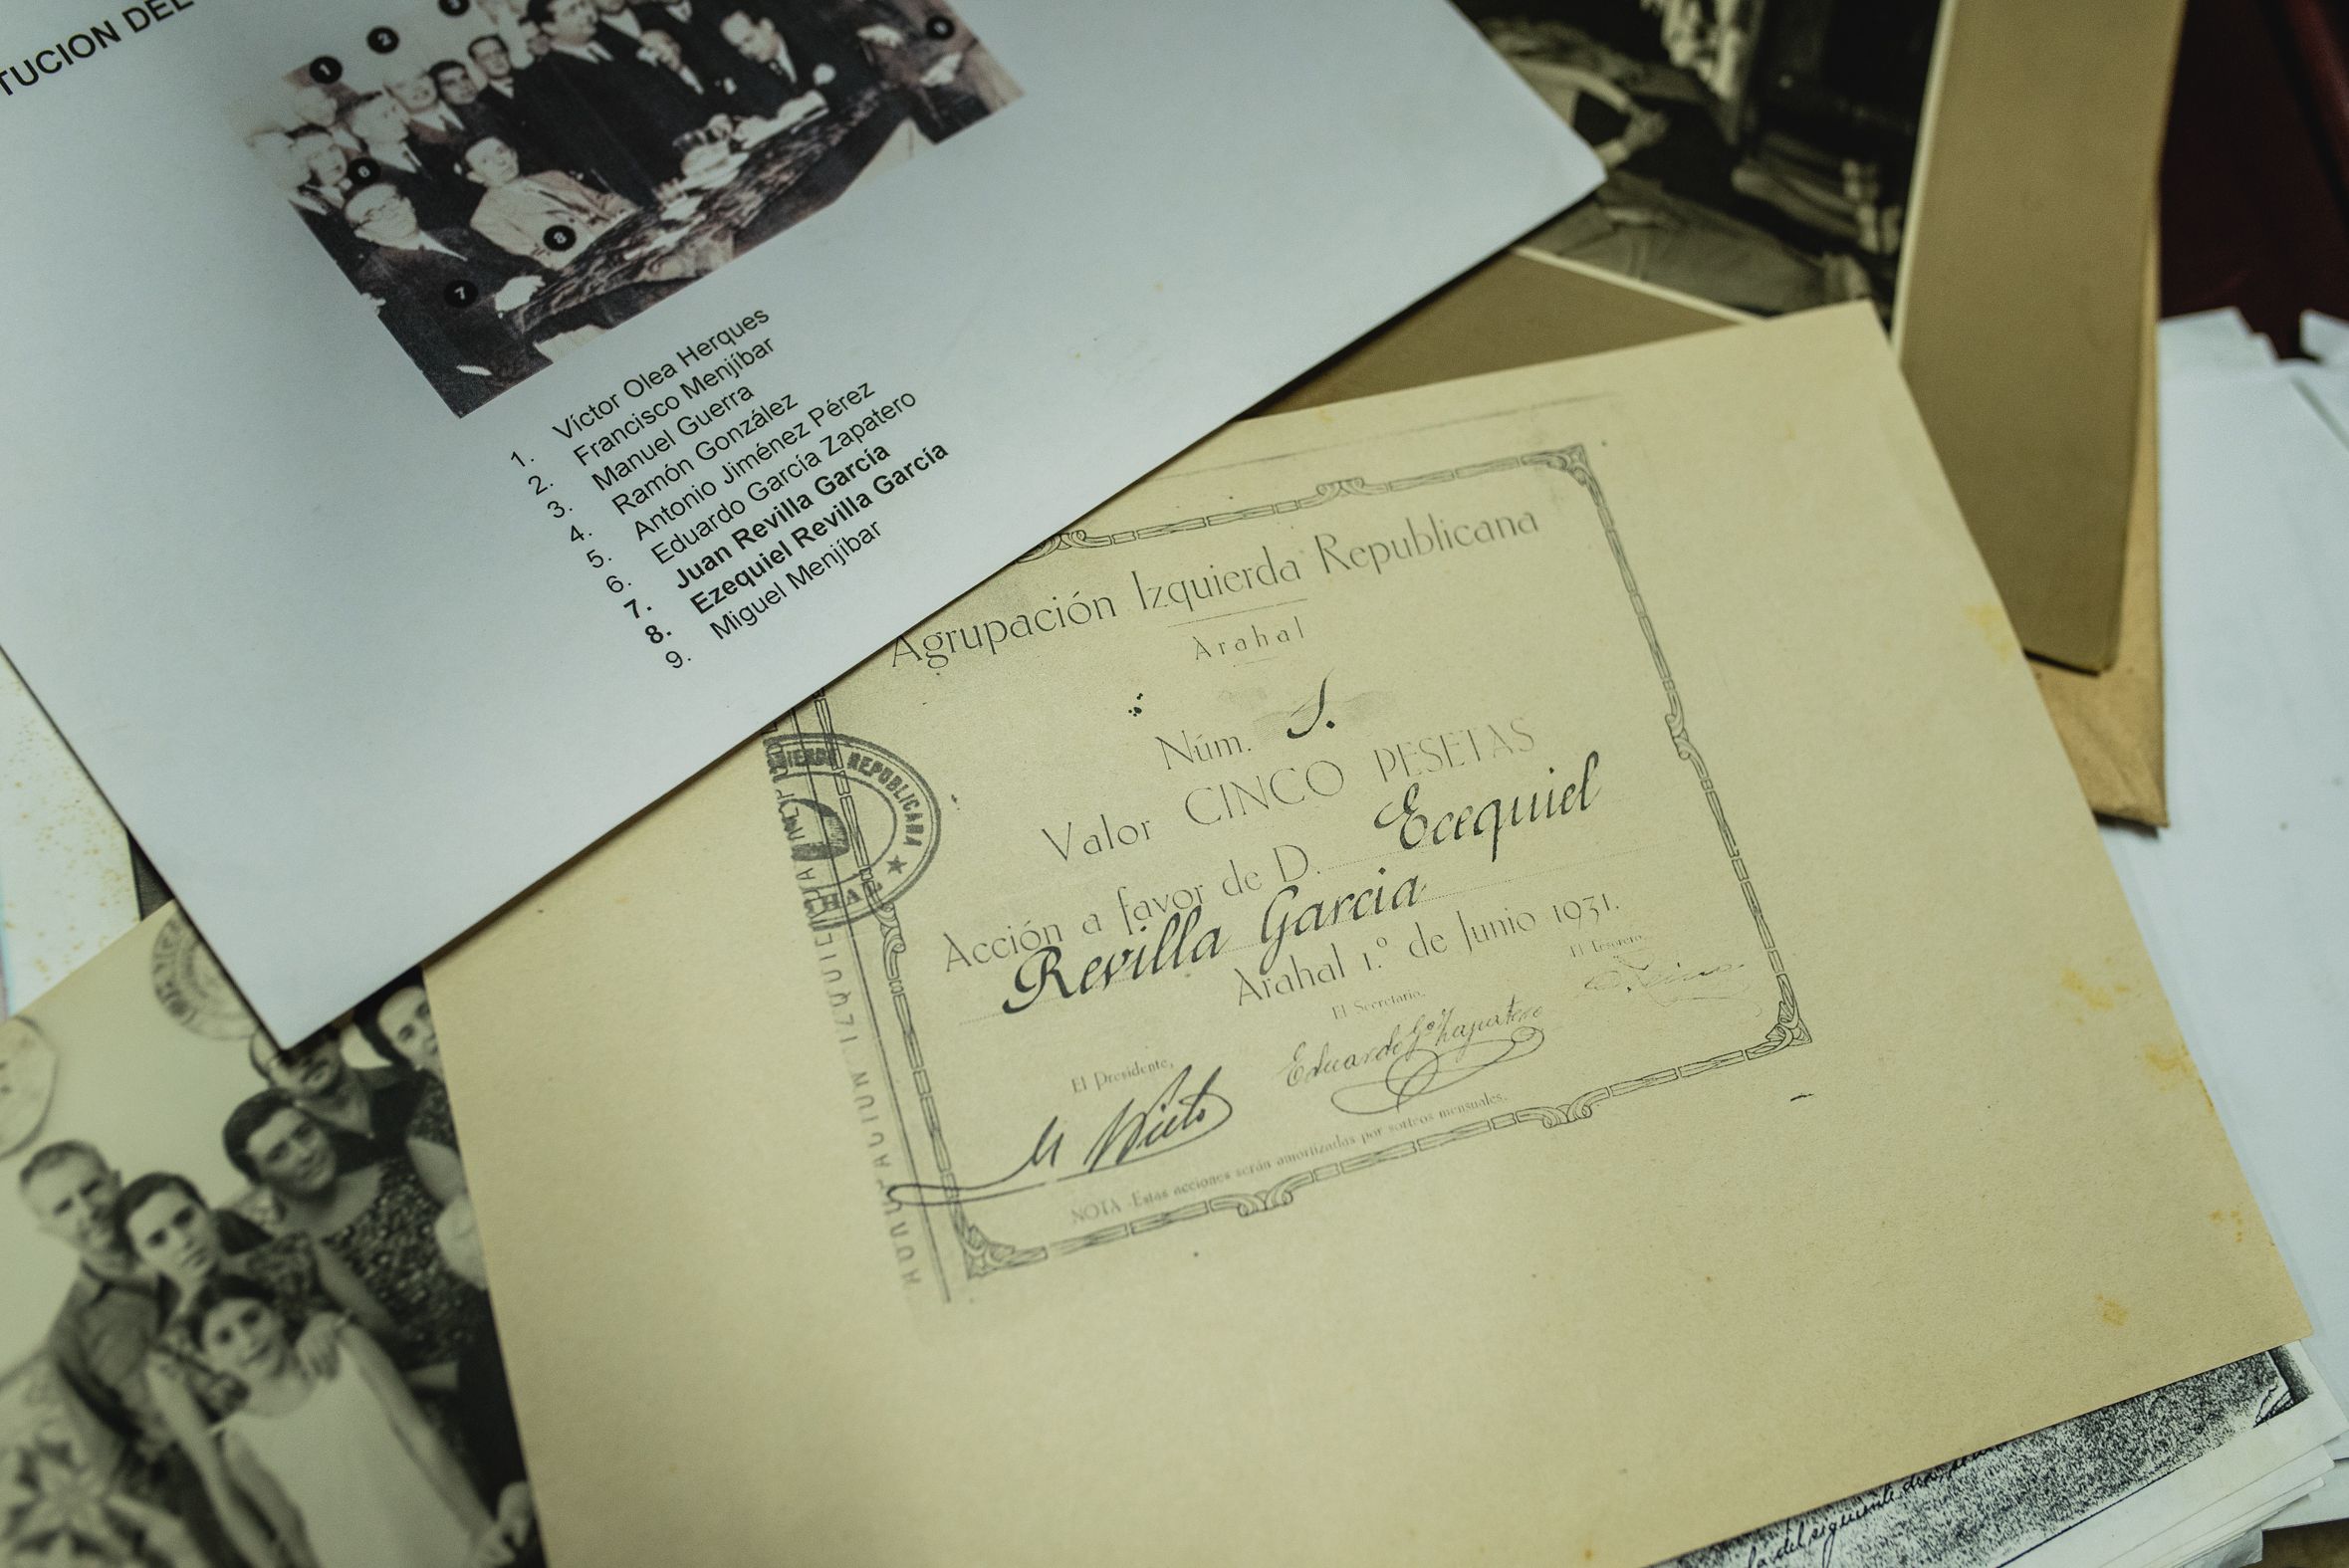 TUCION DEL
1
2
3
6
7
8
9
1. Víctor Olea Herques
2. Francisco Menjíbar
3. Manuel Guerra
4. Ramón González
5. Antonio Jiménez Pérez
6. Eduardo García Zapatero
7. Juan Revilla García
8. Ezequiel Revilla García
9. Miguel Menjíbar
Agrupación Izquierda Republicana
Arahal
Núm. 1.
Valor CINCO PESETAS
Acción a favor de D. Ecequiel
Revilla Garcia
Arahal 1.º de Junio 1931.
El Tesorero,
El Secretario,
Eduardo Gª Zapatero
El Presidente,
M Nieto
NOTA -Estas acciones serán amortizadas por sorteos mensuales.
REPUBLICANA
del siguiente